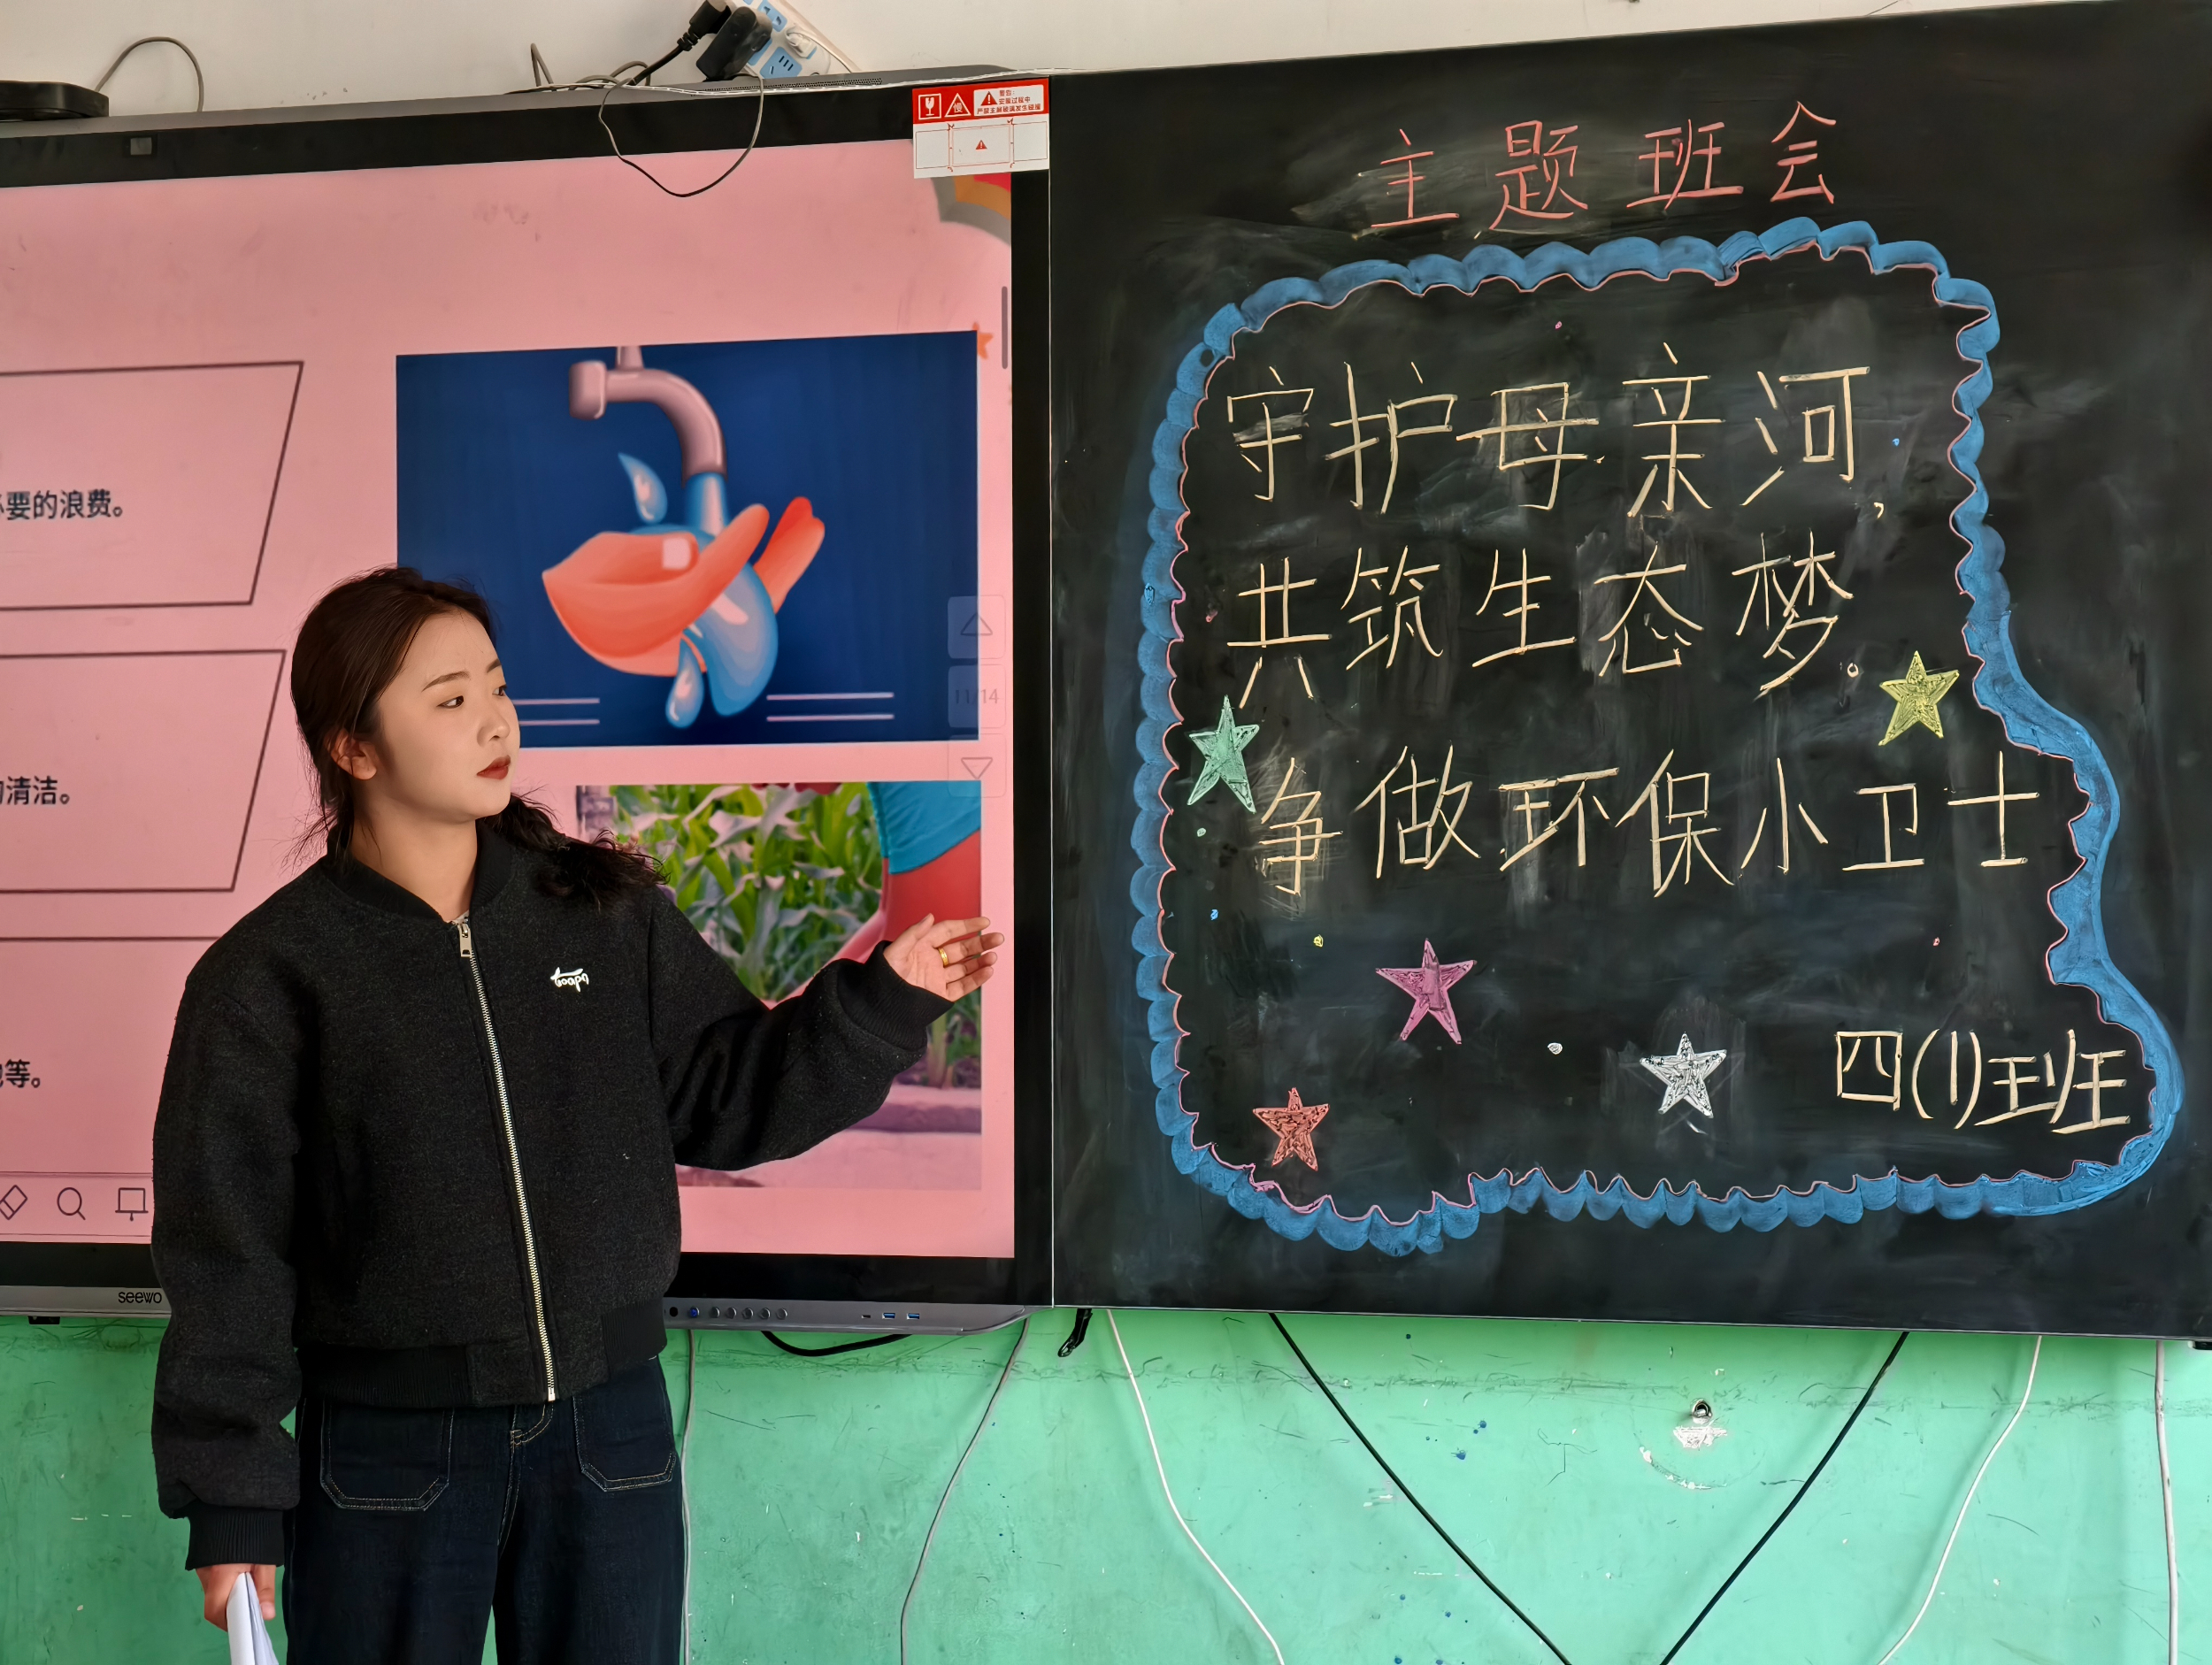 主题班会
守护母亲河，
共筑生态梦。
争做环保小卫士
四(1)班
要的浪费。
清洁。
等。
11/14
seewo